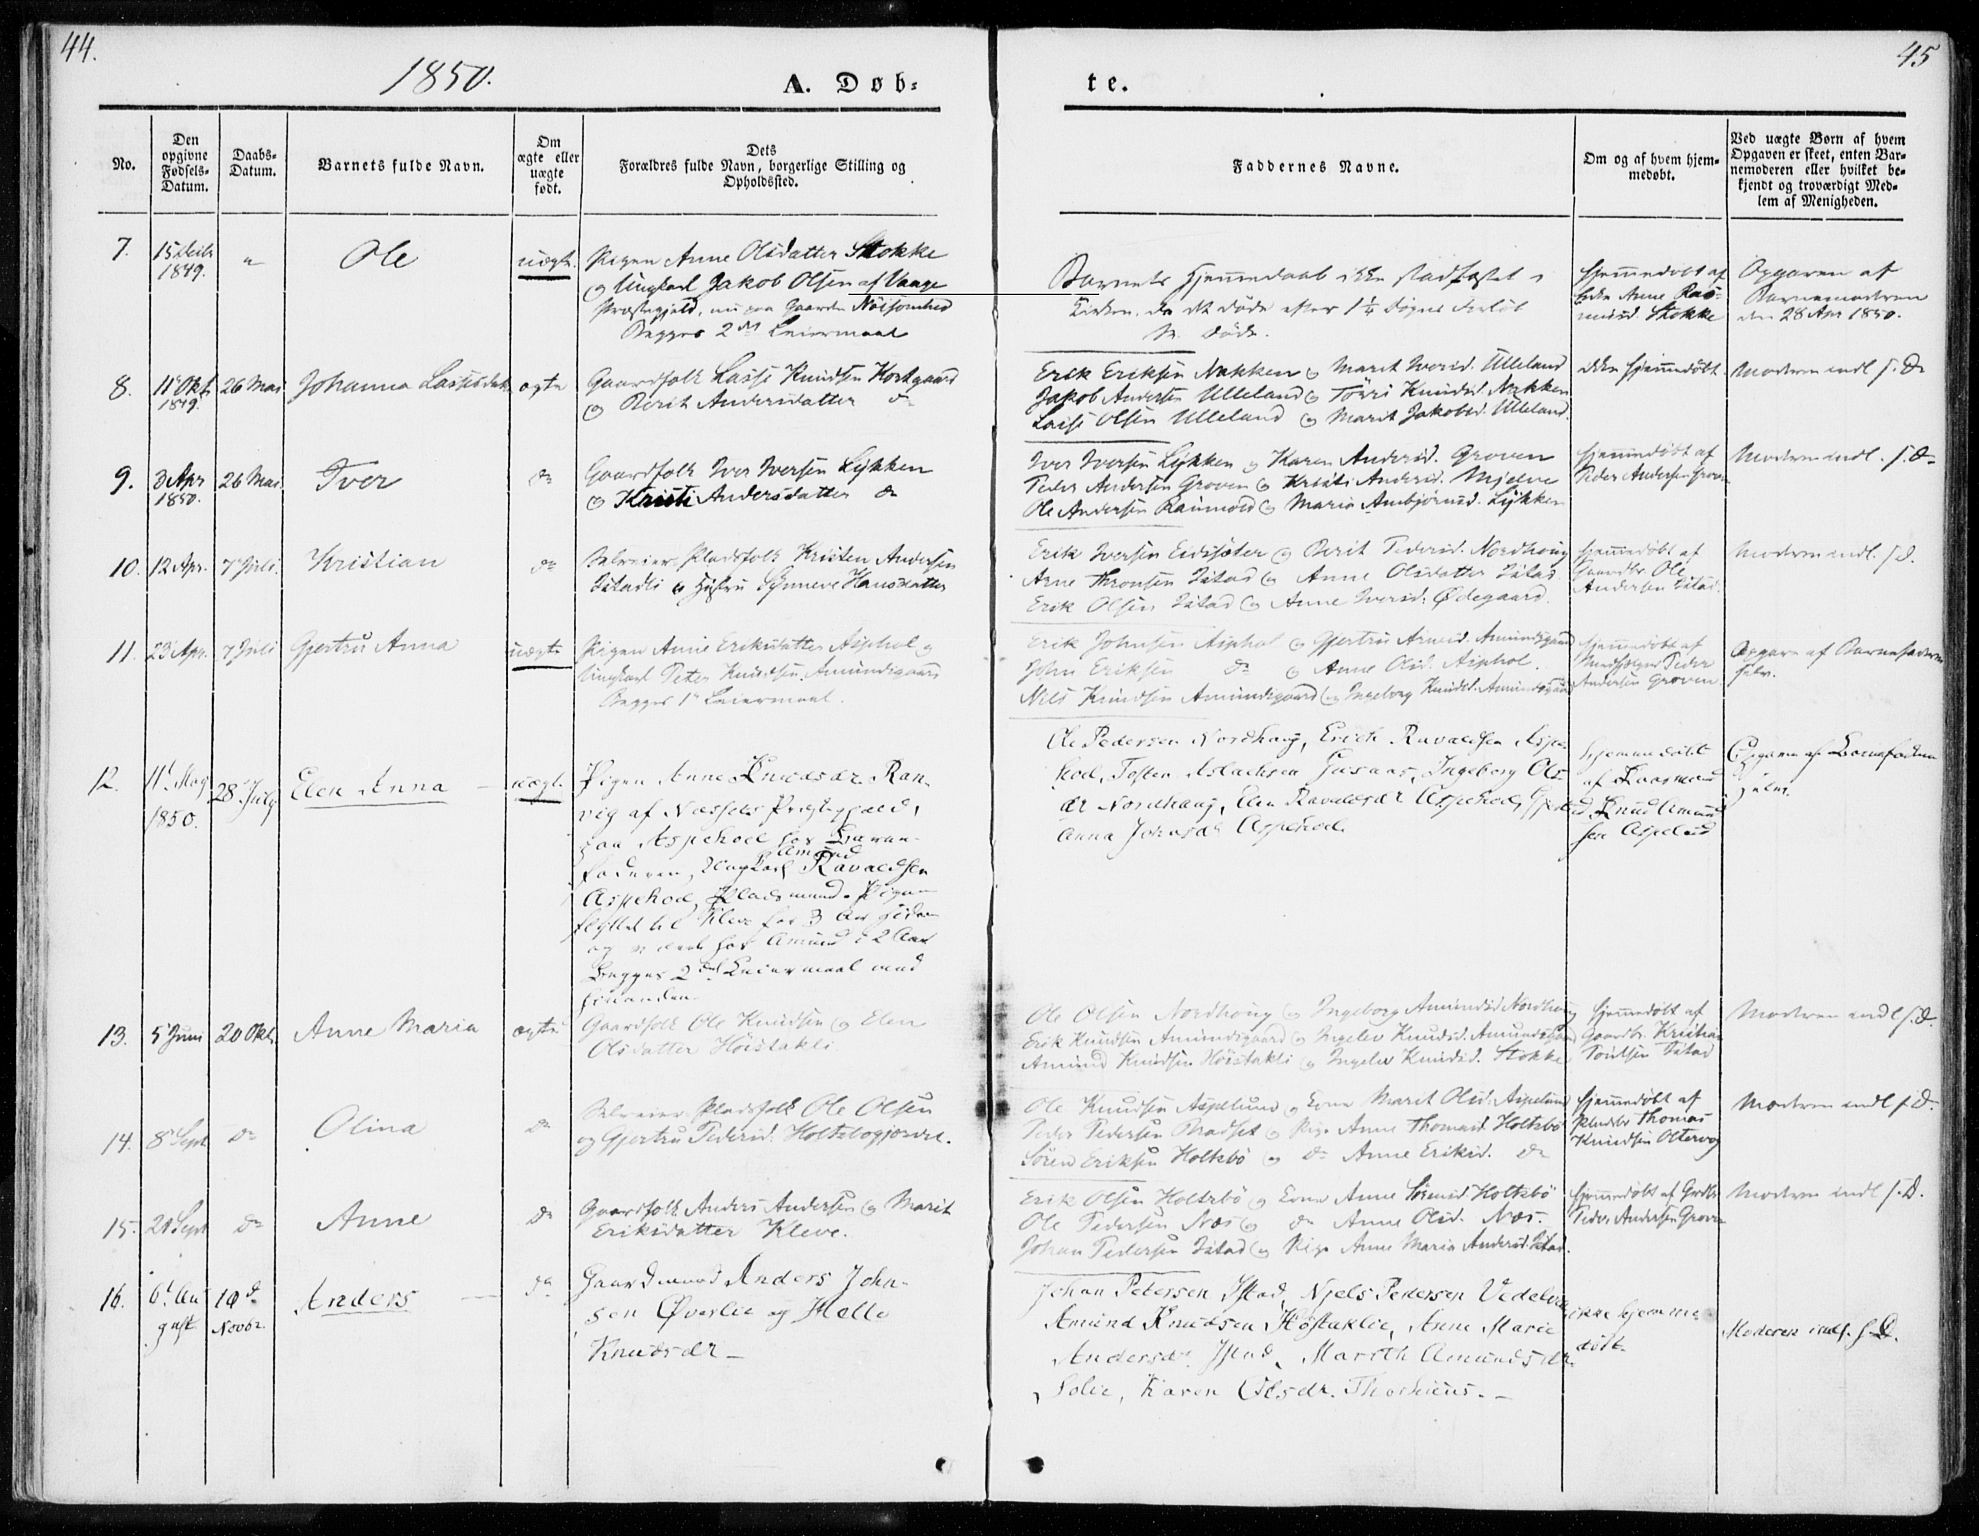 44.
45
1850.
A. Døb-
te.
No.
Den opgivne Fødsels-Datum.
Daabs-Datum.
Barnets fulde Navn.
Om ægte eller uægte født.
Dets Forældres fulde Navn, borgerlige Stilling og Opholdssted.
Faddernes Navne.
Om og af hvem hjemmedøbt.
Ved uægte Børn af hvem Opgaven er skeet, enten Barnemoderen eller hvilket bekjendt og troværdigt Medlem af Menigheden.
7.
1849.
"
Ole
uægt.
Pigen Anne Olsdatter Stokke
og Ungkarl Jakob Olsen af Vaage
Præstegjeld, nu paa Gaarden Nøisomhed
Begges 2det Leiermaal
Barnets Hjemmedaab ikke stadfæstet i
Kirken, da det døde efter 1¼ Døgns Forløb
Se Døde.
Hjemmedøbt af
Enke Anne Ras-
musd. Stokke
Opgaven af
Barnemoderen
den 28 Apr 1850.
8.
11 Okt.
1849.
26 Mai
Johanna Lassesdat.
ægte
Gaardfolk Lasse Knudsen Hostgaard
og Berit Andersdatter do
Erik Eriksen Nakken og Marit Iversd. Ulleland
Jakob Andersen Ulleland og Torri Knudsd. Nakken
Lasse Olsen Ulleland og Marit Jakobsd. Ulleland.
ikke hjemmedøbt.
Moderen indl. s. D.
9.
3 Apr
1850.
26 Mai
Iver
do
Gaardfolk Iver Iversen Lykken
og Kristi Andersdatter do
Iver Iversen Lykken og Karen Andersd. Groven
Peder Andersen Groven og Kristi Andersd. Mjelve
Ole Andersen Raumold og Maria Ambjørnsd. Lykken
hjemmedøbt af
Peder Andersen Groven
Moderen indl. s. D.
10.
12 Apr.
7 Juli.
Kristian
do
Selveier Pladsfolk Kristen Andersen
Istadli og Hustru Synneve Hansdatter
Erik Iversen Eidssæter og Berit Pedersd. Nordhoug
Arne Thronsen Istad og Anne Olsdatter Istad
Erik Olsen Istad og Anne Iversd. Ødegaard.
hjemmedøbt af
Gaardbr. Ole
Andersen Istad.
Moderen indl. s. D.
11.
23 Apr.
7 Juli
Gjertru Anna
uægte
Pigen Anne Eriksdatter Asphol og
Ungkarl Peter Knudsen Amundsgaard
Begges 1ste Leiermaal.
Erik Johnsen Asphol og Gjertru Arnesd. Amundsgaard
John Eriksen do og Anne Olsd. Asphol.
Nils Knudsen Amundsgaard og Ingeborg Knudsd. Amundsgaard
hjemmedøbt af
Medhjælper Peder
Andersen Groven.
Opgave af Barnefaderen
selv.
12.
11te May
1850.
28 July
Elen Anna
uægt.
Pigen Anne Knudsdr Ran-
vig af Næssets Præstegjeld,
paa Aspehoel hos Barne-
faderen, Ungkarl Amund Ravaldsen
Aspehoel, Pladsmand. Pigen
flyttet til Kleve for 3 Aar siden
og været hos Amund i 2 Aar
Begges 2det Leiermaal med
hinanden.
Ole Pedersen Nordhaug, Erich Ravaldsen Aspe-
hoel, Tosten Aslachsen Gusaas, Ingeborg Ols-
dr Nordhaug, Elen Ravaldsdr Aspehoel,
Anna Johnsdr Aspehoel.
Hjemmedøbt
af Baadsmand
Knud Amund-
sen Aspelund
Opgaven af Barnefaderen
selv.
13.
5 Juni
20 Okt.
Anne Maria
ægte
Gaardfolk Ole Knudsen og Elen
Olsdatter Høistakli
Ole Olsen Nordhoug og Ingeborg Amundsd. Nordhoug
Erik Knudsen Amundsgaard og Ingelev Knudsd. Amundsgaard
Amund Knudsen Høistakli og Ingelev Knudsd. Stokke
hjemmedøbt af
Gaardbr. Kristian
Poulsen Istad
Moderen indl. s. D.
14.
8 Sept
do
Olina
do
Selveier Pladsfolk Ole Olsen
og Gjertru Pedersd. Holtsbogjerdet.
Ole Knudsen Aspelund og Kone Marit Olsd. Aspelund
Peder Pedersen Madset og Pige Anne Thomasd. Holtsbø
Søren Eriksen Holtsbø og do Anne Eriksd. do
hjemmedøbt af
Pladsbr Thomas
Knudsen Oltervog
Moderen indl. s. D.
15.
Sept
do
Anne
do
Gaardfolk Anders Andersen og Marit
Eriksdatter Kleve.
Erik Olsen Holtsbø og Kone Anne Sørensd. Holtsbø
Ole Pedersen Næs og do Anne Olsd. Næs.
Johan Pedersen Istad og Pige Anne Maria Andersd. Istad.
hjemmedøbt af Grdbr.
Peder Andersen Groven
Moderen indl. s. D.
16.
6te Au-
gust
10de
Novbr.
Anders
do
Gaardmand Anders John-
sen Øverlie og Malle
Knudsdr
Johan Petersen Istad, Njels Pedersen Vedelvig
Amund Knudsen Høstaklie, Anne Marie
Andersdr. Istad, Marith Amundsdr.
Solie, Karen Olsdr.
ikke hjemme-
døbt
Moderen indl. s. D.